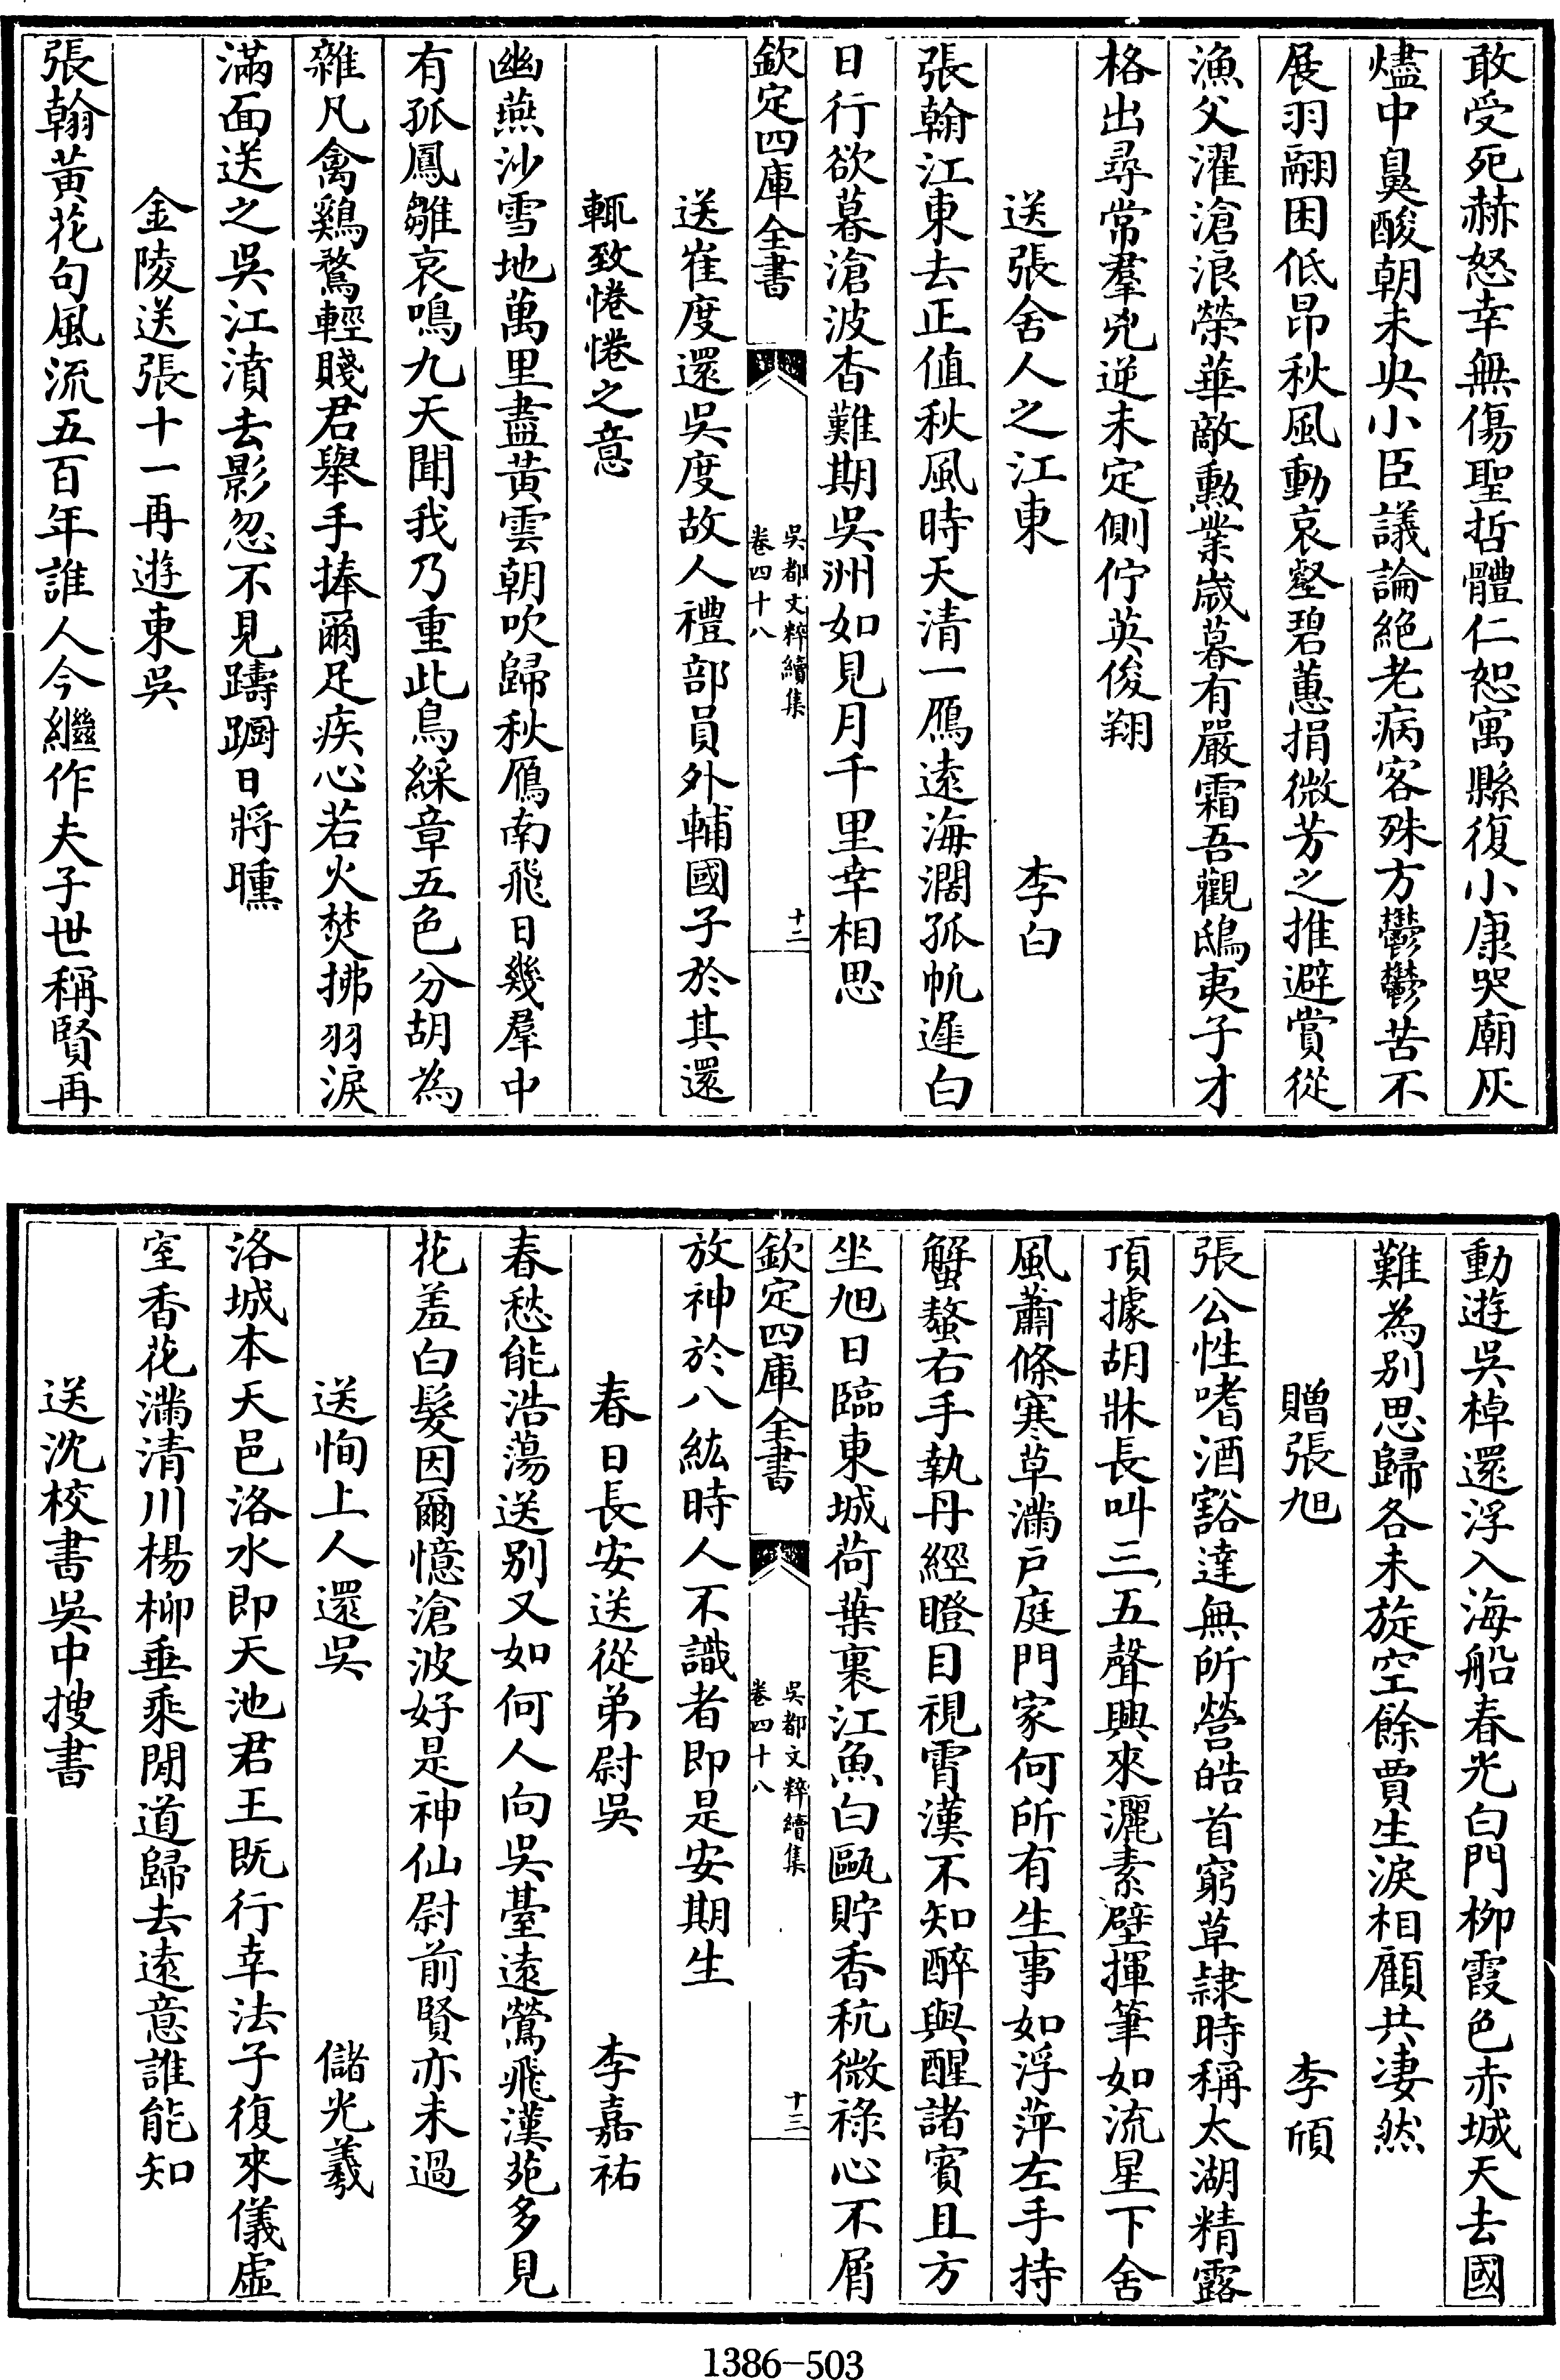 敢受死赫怒幸無傷聖哲體仁恕寓縣復小康哭廟灰
燼中鼻酸朝未央小臣議論絕老病客殊方鬱鬱苦不
展羽翮困低昂秋風動哀壑碧蕙捐微芳之推避賞從
漁父濯滄浪榮華敵勲業嵗暮有嚴霜吾觀鴟夷子才
格出尋常羣兇逆未定側佇英俊翔
送張舍人之江東 李白
張翰江東去正值秋風時天清一鴈遠海濶孤帆遲白
日行欲暮滄波杳難期吳洲如見月千里幸相思
欽定四庫全書 吳都文粹續集 卷四十八 十二
送崔度還吳度故人禮部員外輔國子於其還
輒致惓惓之意
幽燕沙雪地萬里盡黃雲朝吹歸秋鴈南飛日幾羣中
有孤鳳雛哀鳴九天聞我乃重此鳥綵章五色分胡為
雜凡禽鷄鶩輕賤君舉手捧爾足疾心若火焚拂羽淚
滿面送之吳江濆去影忽不見躊躕日將曛
金陵送張十一再遊東吳
張翰黃花句風流五百年誰人今繼作夫子世稱賢再
動遊吳棹還浮入海船春光白門柳霞色赤城天去國
難為别思歸各未旋空餘賈生淚相顧共凄然
贈張旭 李頎
張公性嗜酒豁達無所營皓首窮草隷時稱太湖精露
頂據胡牀長叫三五聲興來灑素壁揮筆如流星下舍
風蕭條寒草滿户庭門家何所有生事如浮萍左手持
蟹螯右手執丹經瞪目視霄漢不知醉與醒諸賓且方
坐旭日臨東城荷葉裏江魚白甌貯香秔微祿心不屑
欽定四庫全書 吳都文粹續集 卷四十八 十三
放神於八紘時人不識者即是安期生
春日長安送從弟尉吳 李嘉祐
春愁能浩蕩送别又如何人向吳臺遠鶯飛漢苑多見
花羞白髮因爾憶滄波好是神仙尉前賢亦未過
送恂上人還吳 儲光羲
洛城本天邑洛水即天池君王既行幸法子復來儀虛
室香花滿清川楊柳垂乘閒道歸去遠意誰能知
送沈校書吳中搜書
1386-503